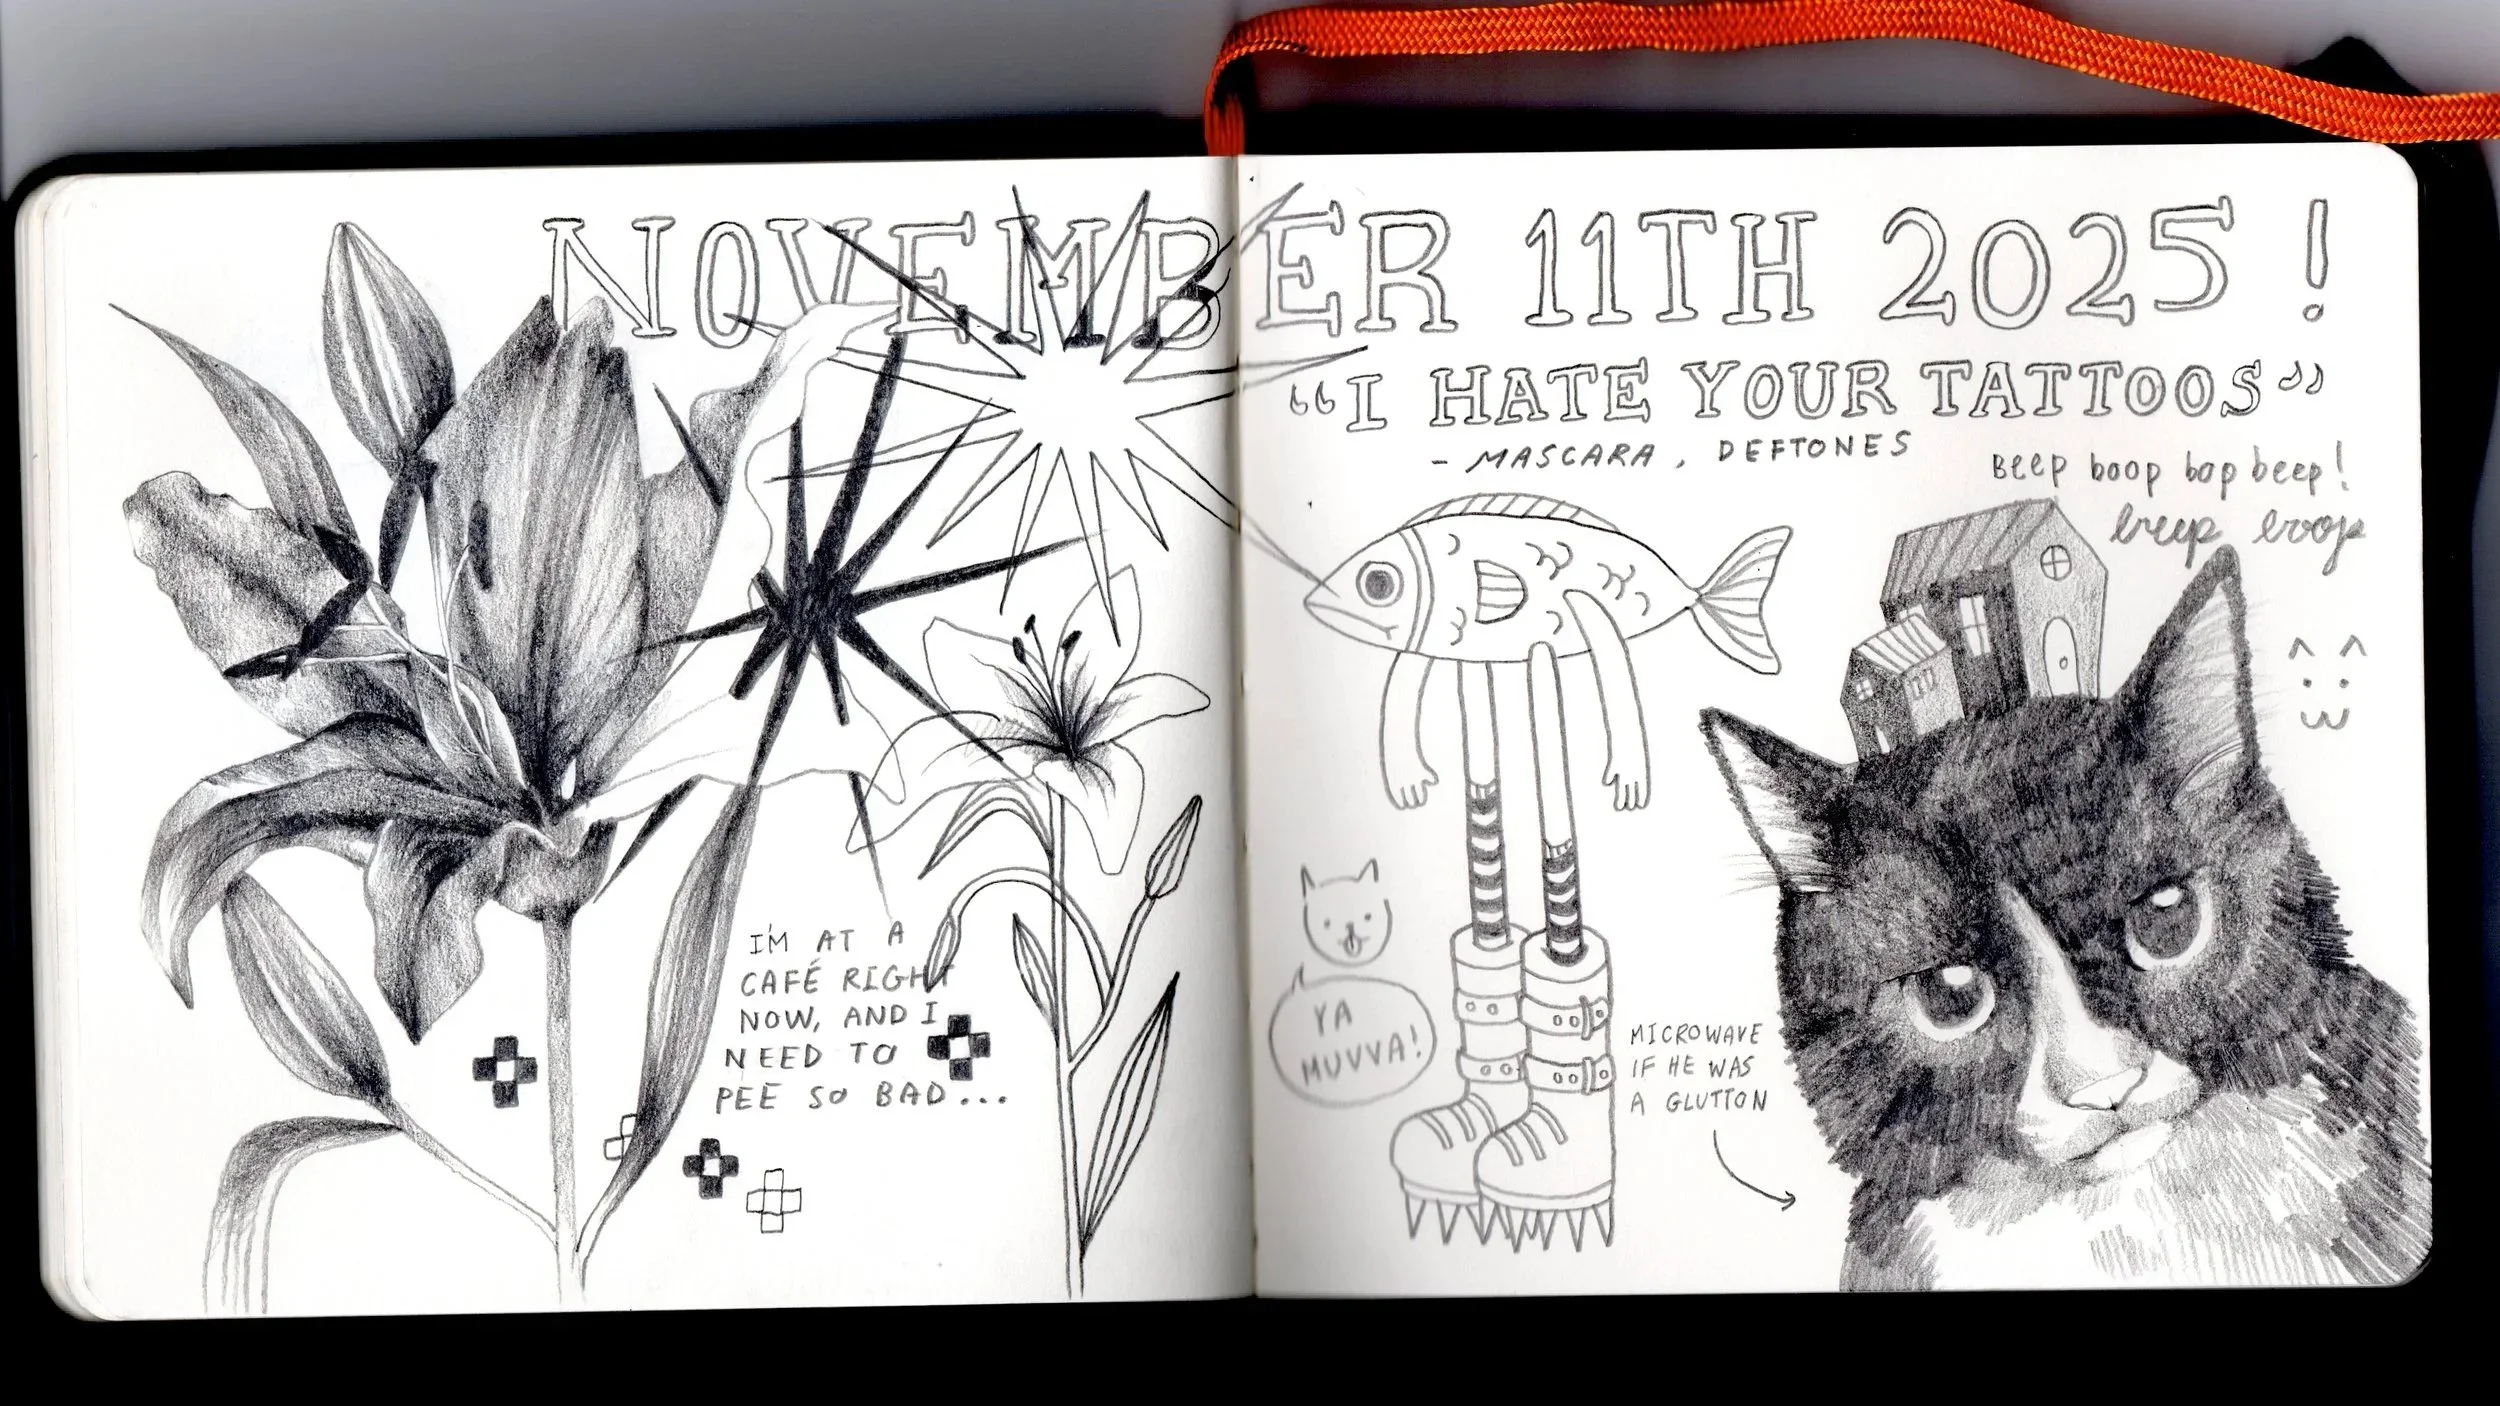 NOVEMBER 11TH 2025!
"I HATE YOUR TATTOOS"
- MASCARA, DEFTONES
Beep boop bop beep!
breep broop
I'M AT A
CAFÉ RIGHT
NOW, AND I
NEED TO
PEE SO BAD...
YA
MUVVA!
MICROWAVE
IF HE WAS
A GLUTTON